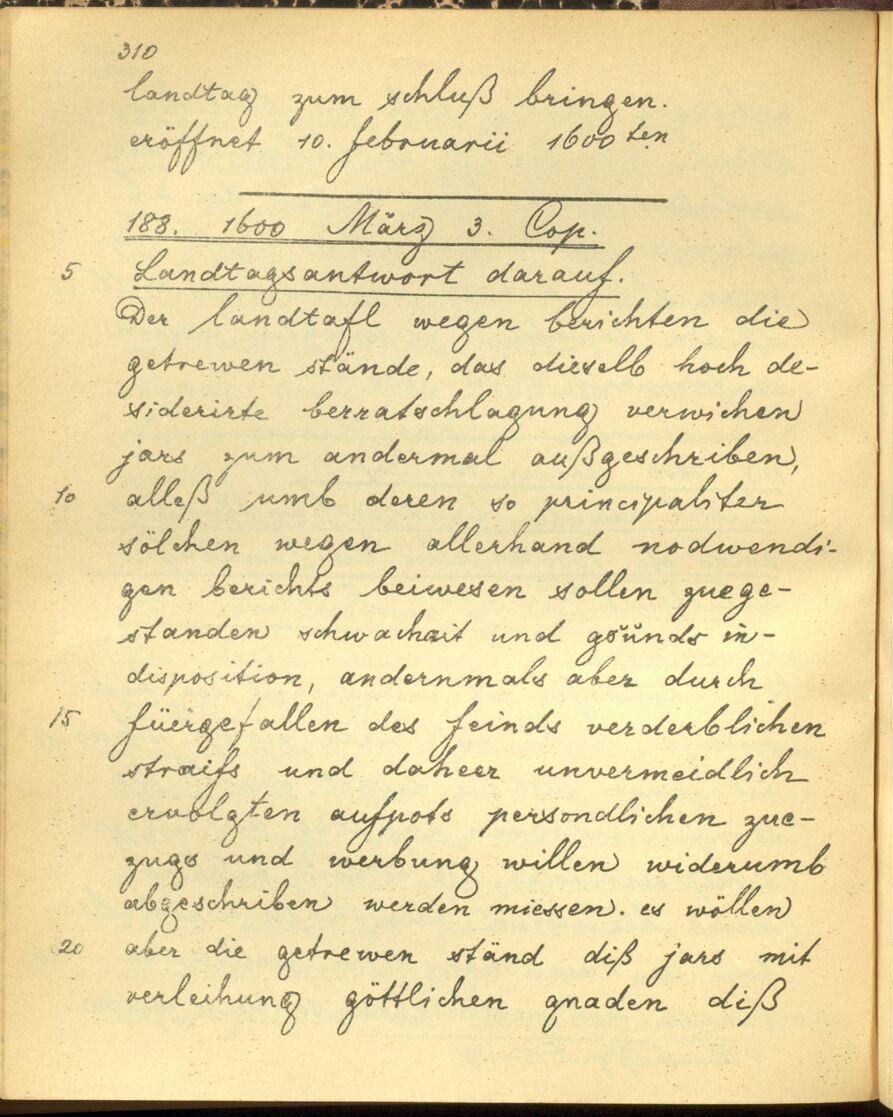 310
landtag zum schluß bringen.
eröffnet 10. februarii 1600 ten
188. 1600 März 3. Cop.
5 Landtagsantwort darauf.
Der landtafl wegen berichten die
getrewen stände, das dieselb hoch de-
siderirte berratschlagung verwichen
jars zum andermal außgeschriben,
10 alleß umb deren so principaliter
sölchen wegen allerhand nodwendi-
gen berichts beiwesen sollen zuege-
standen schwachait und gsünds in-
disposition, andernmals aber durch
15 füergefallen des feinds verderblichen
straifs und daheer unvermeidlich
ervolgten aufpots persondlichen zue-
zugs und werbung willen widerumb
abgeschriben werden miessen. es wöllen
20 aber die getrewen ständ diß jars mit
verleihung göttlichen gnaden diß